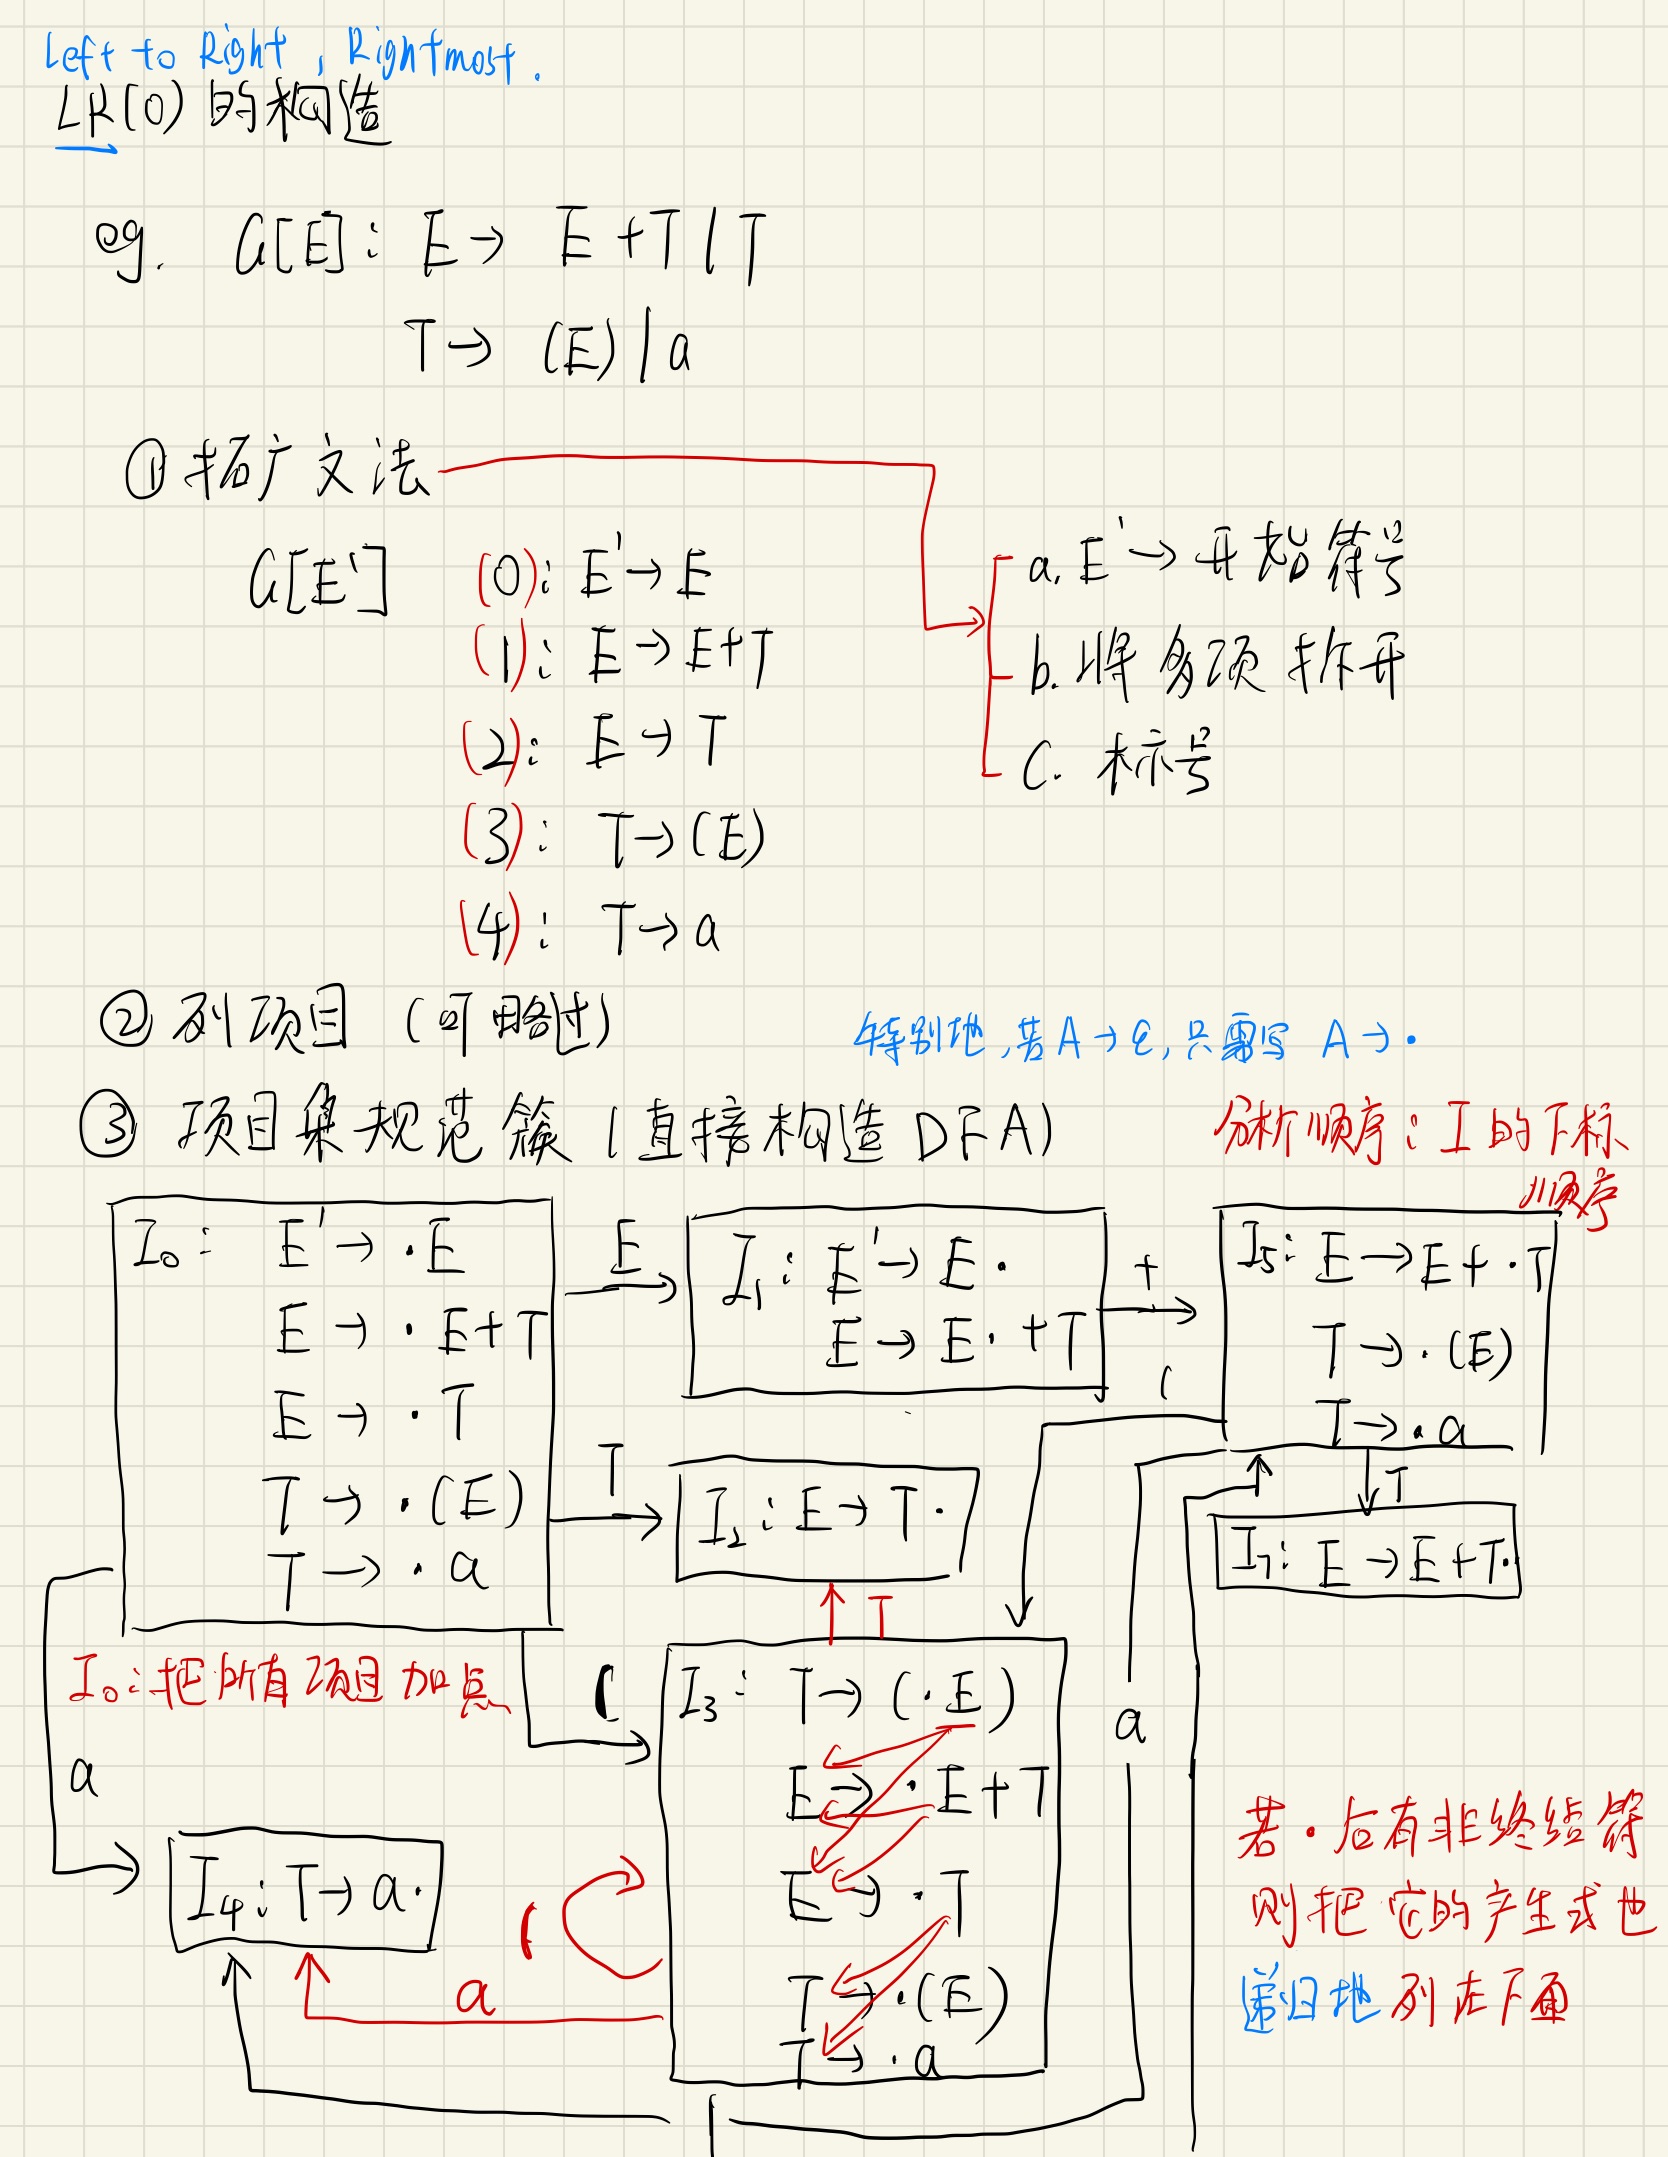 Left to Right, Rightmost.
LR(0)的构造
eg. G[E]: E → E+T | T
T → (E) | a
① 拓广文法
G[E'] (0): E' → E
(1): E → E+T
(2): E → T
(3): T → (E)
(4): T → a
a. E' → 开始符号
b. 将多项拆开
C. 标号
② 列项目 (可略过)
特别地,若A→ε,只需写 A→·
③ 项目集规范簇 (直接构造DFA)
分析顺序: I的下标
顺序
I₀: E' → ·E
E → ·E+T
E → ·T
T → ·(E)
T → ·a
E
I₁: E' → E·
E → E·+T
+
I₅: E → E+·T
T → ·(E)
T → ·a
(
T
I₂: E → T·
T
I₇: E → E+T·
T
I₀: 把所有项目加点
(
I₃: T → (·E)
E → ·E+T
E → ·T
T → ·(E)
T → ·a
a
a
I₄: T → a·
(
a
若·后有非终结符
则把它的产生式也
递归地列在下面